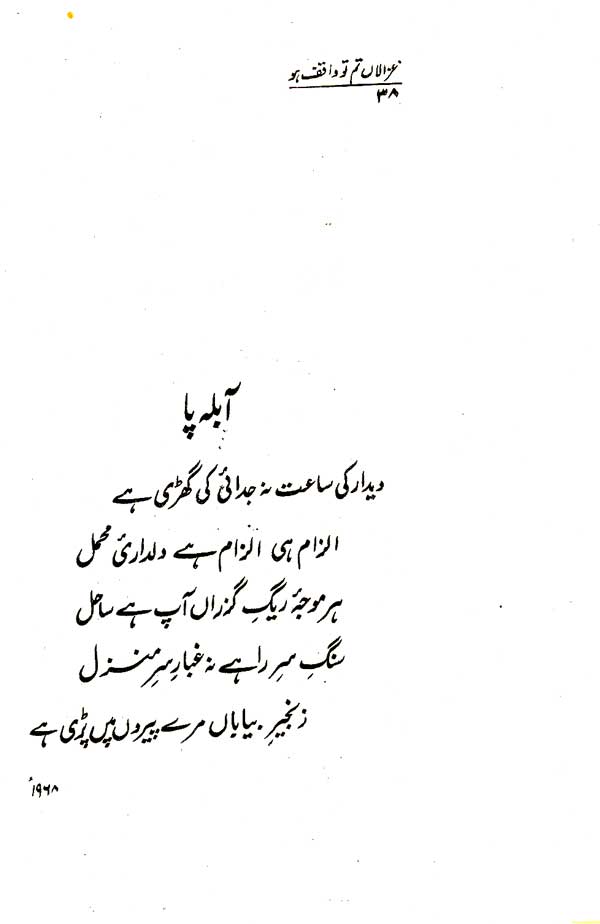 غزالاں تم تو واقف ہو
۳۸
آبلہ پا
دیدار کی ساعت نہ جدائی کی گھڑی ہے
الزام ہی الزام ہے دلداریٔ محمل
ہر موجۂ ریگِ گزراں آپ ہے ساحل
سنگِ سرِ راہے نہ غبارِ سرِ منزل
زنجیرِ بیاباں مرے پیروں میں پڑی ہے
۱۹۶۸ء